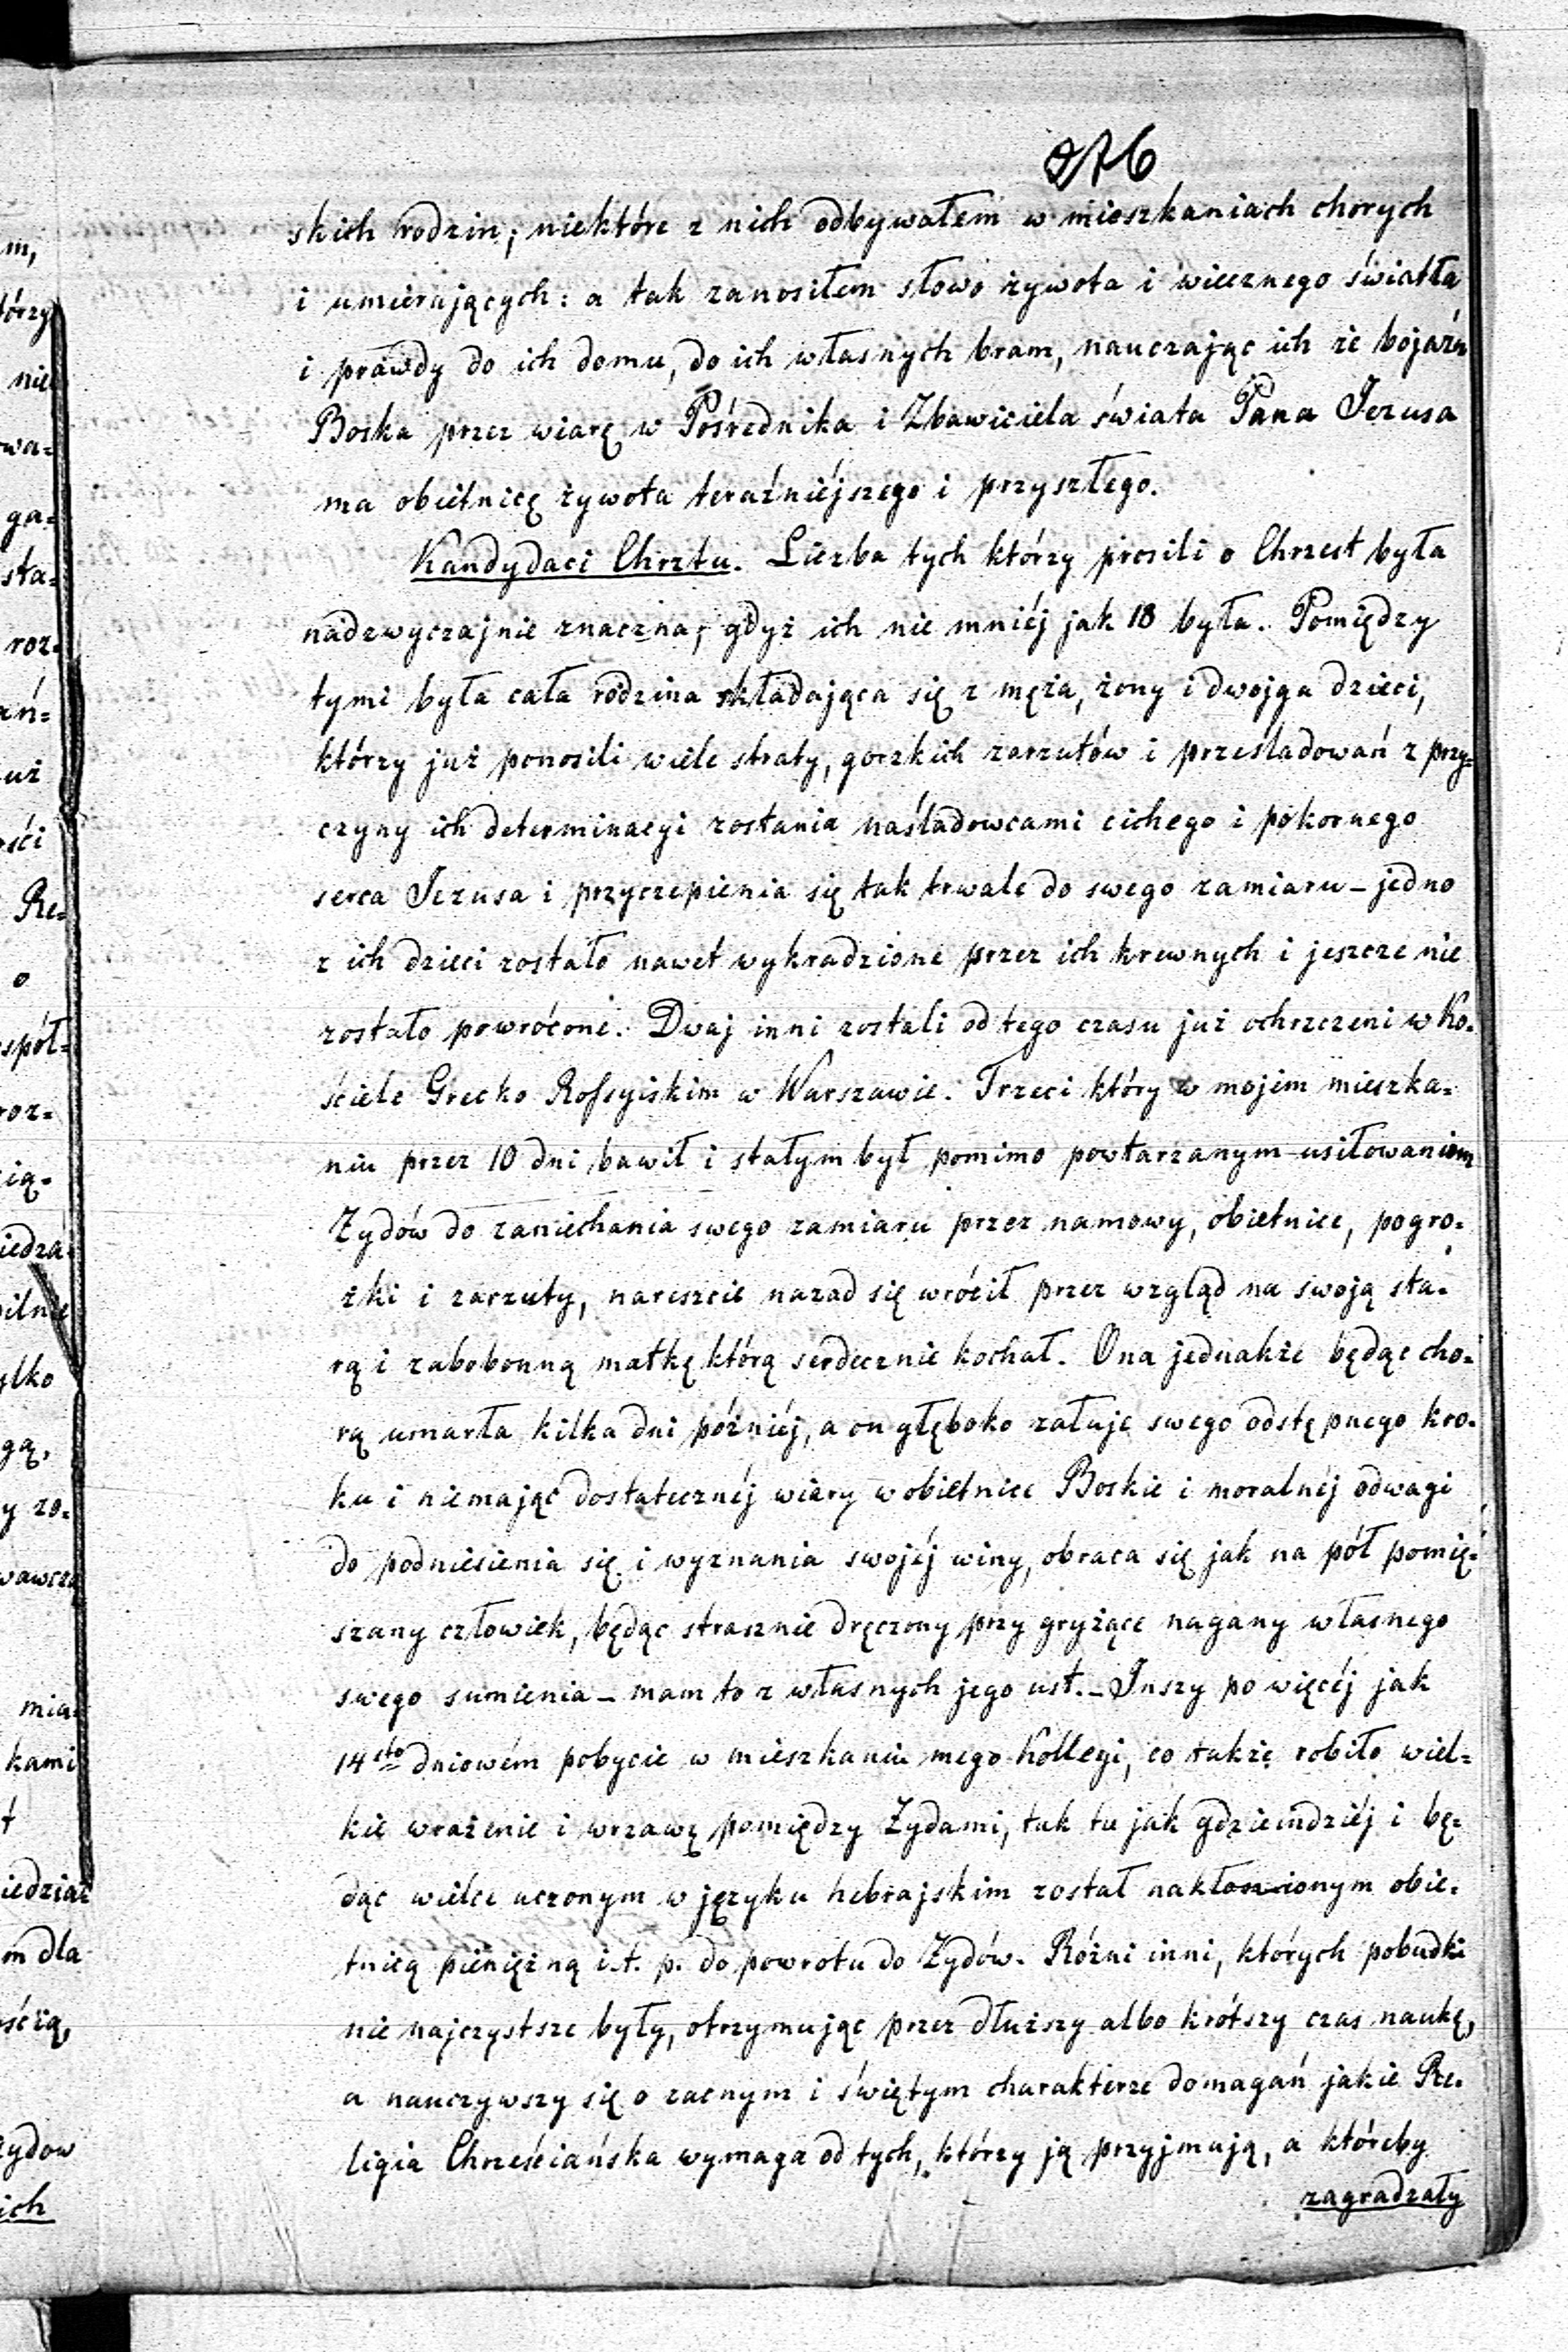 276
skich rodzin; niektóre z nich odbywałem w mieszkaniach chorych
i umierających: a tak zanosiłem słowo żywota i wiecznego światła
i prawdy do ich domu, do ich własnych bram, nauczając ich że bojaźń
Boska przez wiarę w Pośrednika i Zbawiciela świata Pana Jezusa
ma obietnicę żywota teraźniéjszego i przyszłego.
Kandydaci Chrztu. Liczba tych którzy prosili o Chrzest była
nadzwyczajnie znaczna, gdyż ich nie mniéj jak 18 była. Pomiędzy
tymi była cała rodzina składająca się z męża, żony i dwojga dzieci,
którzy już ponosili wiele straty, gorzkich zarzutów i prześladowań z przy=
czyny ich determinacyi zostania naśladowcami cichego i pokornego
serca Jezusa i przyczepienia się tak trwale do swego zamiaru – jedno
z ich dzieci zostało nawet wykradzione przez ich krewnych i jeszcze nie
zostało powrócone. Dwaj inni zostali od tego czasu już ochrzczeni w Ko=
ściele Grecko Rossyiskim w Warszawie. Trzeci który w mojem mieszka=
niu przez 10 dni bawił i stałym był pomimo powtarzanym usiłowaniom
Żydów do zaniechania swego zamiaru przez namowy, obietnice, pogro=
żki i zarzuty, nareszcie nazad się wrócił przez wzgląd na swoją sta=
rą i zabobonną matkę którą serdecznie kochał. Ona jednakże będąc cho=
rą umarła kilka dni późniéj, a on głęboko żałuje swego odstępnego kro=
ku i niemając dostatecznéj wiary w obietnice Boskie i moralnéj odwagi
do podniesienia się i wyznania swojéj winy, obraca się jak na pół pomię=
szany człowiek, będąc strasznie dręczony przy gryżące nagany własnego
swego sumienia – mam to z własnych jego ust. – Inszy po więcéj jak
14sto dniowém pobycie w mieszkaniu mego Kollegi, co także robiło wiel=
kie wrażenie i wrzawę pomiędzy Żydami, tak tu jak gdzieindziéj i bę=
dąc wielce uczonym w języku hebrajskim został nakłonionym obie=
tnicą pieniężną i.t. p. do powrotu do Żydów. Różni inni, których pobudki
nie najczystsze były, otrzymując przez dłuższy albo krótszy czas naukę,
a nauczywszy się o zacnym i świętym charakterze domagań jakie Re=
ligia Chrześciańska wymaga od tych, którzy ją przyjmują, a któreby
zagradzały